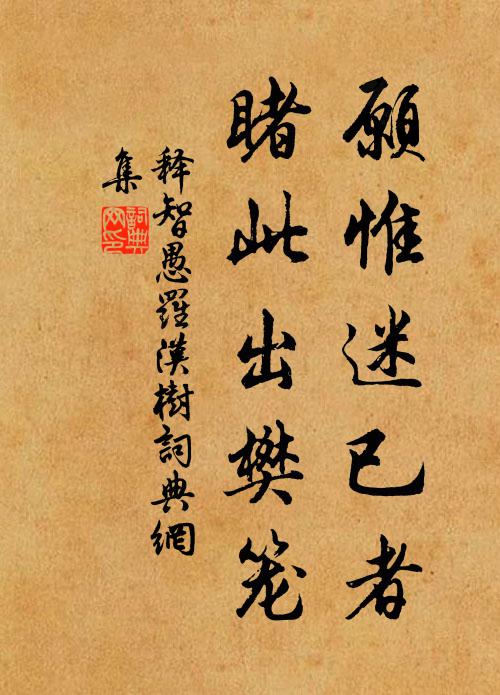 願惟迷已者
睹此出樊笼
释智愚羅漢樹詞典網
集
詞典網印